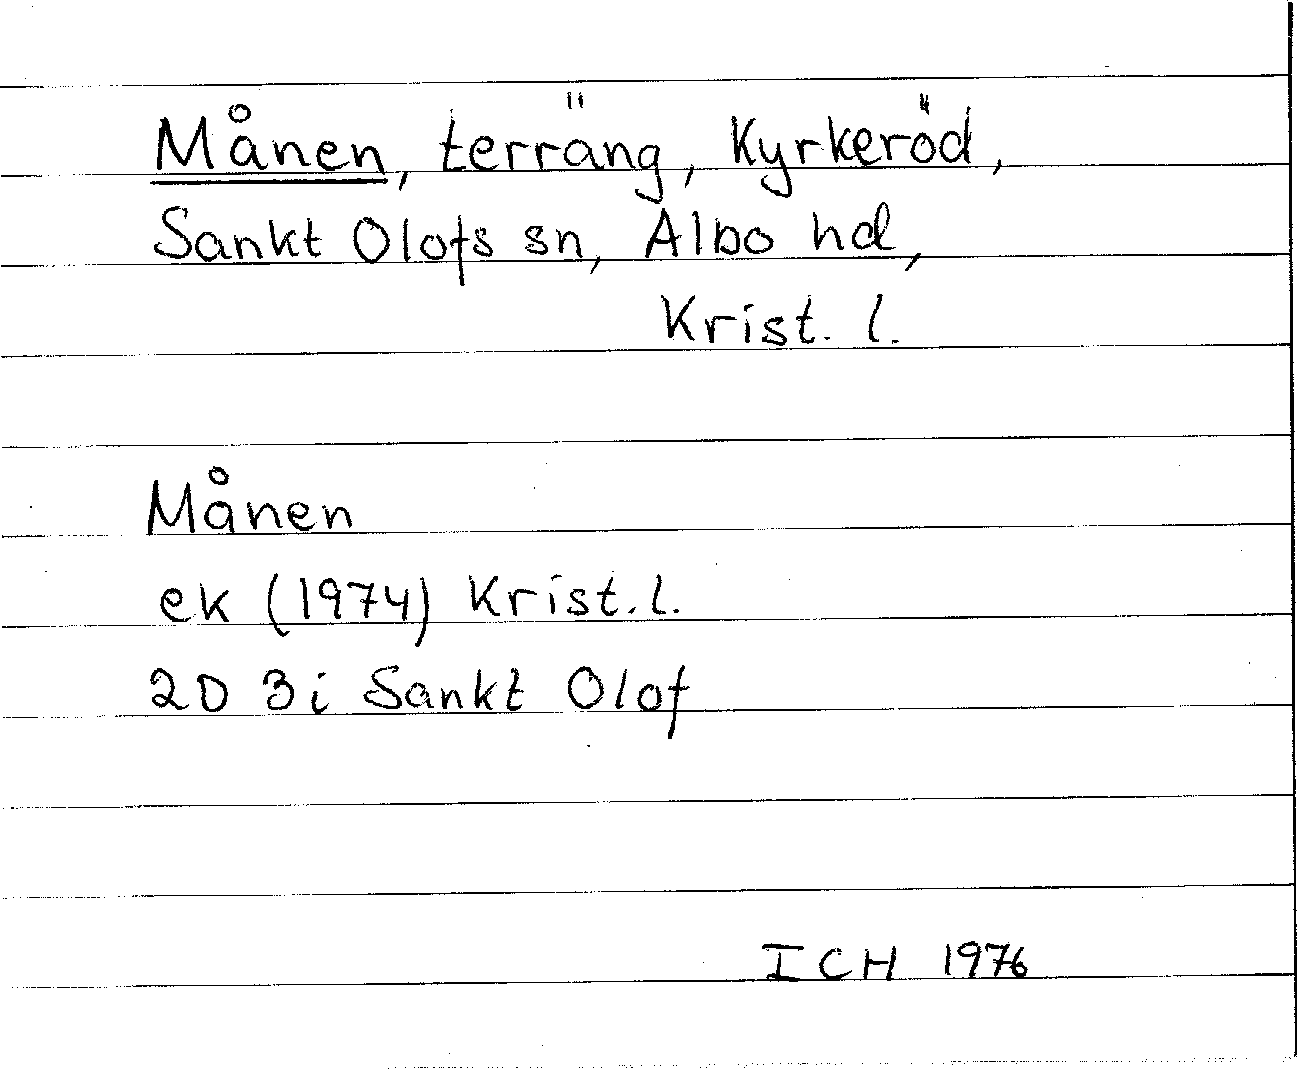 Månen, terräng, Kyrkeröd,
Sankt Olofs sn, Albo hd,
Krist. l.
Månen
ek (1974) Krist. l.
2D 3i Sankt Olof
ICH 1976